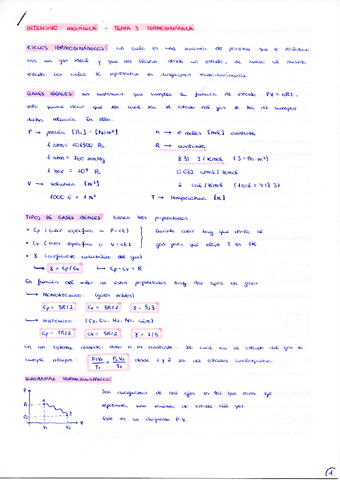 INTENSIVO MECÁNICA - TEMA 3 TERMODINÁMICA
CICLOS TERMODINÁMICOS: un ciclo es una sucesión de procesos que se realizan
con un gas ideal y que nos llevan desde un estado, de nuevo al mismo
estado. Los ciclos se representan en diagramas termodinámicos.
GASES IDEALES: son sustancias que cumplen la función de estado PV = nRT,
esto quiere decir que sea cual sea el estado del gas se ha de cumplir
dicha relación. En ella:
P → presión [Pa] = [N/m²] n → nº moles [mol] constante
1 atm = 101300 Pa R → constante
1 atm = 760 mmHg 8'31 J/K·mol (J = Pa·m³)
1 bar = 10⁵ Pa 0'082 atm·l/K·mol
V → volumen [m³] 2 cal/K·mol (1 cal = 4'18 J)
1000 l = 1 m³ T → temperatura [K]
TIPOS DE GASES IDEALES: tienen tres propiedades
• Cp (calor específico a P = cte) cuánto calor hay que darle al
• Cv (calor específico a V = cte) gas para que eleve T en 1K
• γ (coeficiente adiabático del gas)
γ = Cp/Cv Cp - Cv = R
En función del valor de estas propiedades hay dos tipos de gases
→ MONOATÓMICO: (gases nobles)
Cp = 5R/2 Cv = 3R/2 γ = 5/3
→ DIATÓMICO: (O₂, Cl₂, H₂, N₂, aire)
Cp = 7R/2 Cv = 5R/2 γ = 7/5
En un sistema cerrado
cumple siempre: P₁V₁/T₁ = P₂V₂/T₂ donde 1 y 2 son dos estados cualesquiera.
DIAGRAMAS TERMODINÁMICOS:
P
Son diagramas de dos ejes en los que cada eje
P₁
representa una variable de estado del gas.
P₂
Este es un diagrama P-V.
V₁ V₂ V
1.